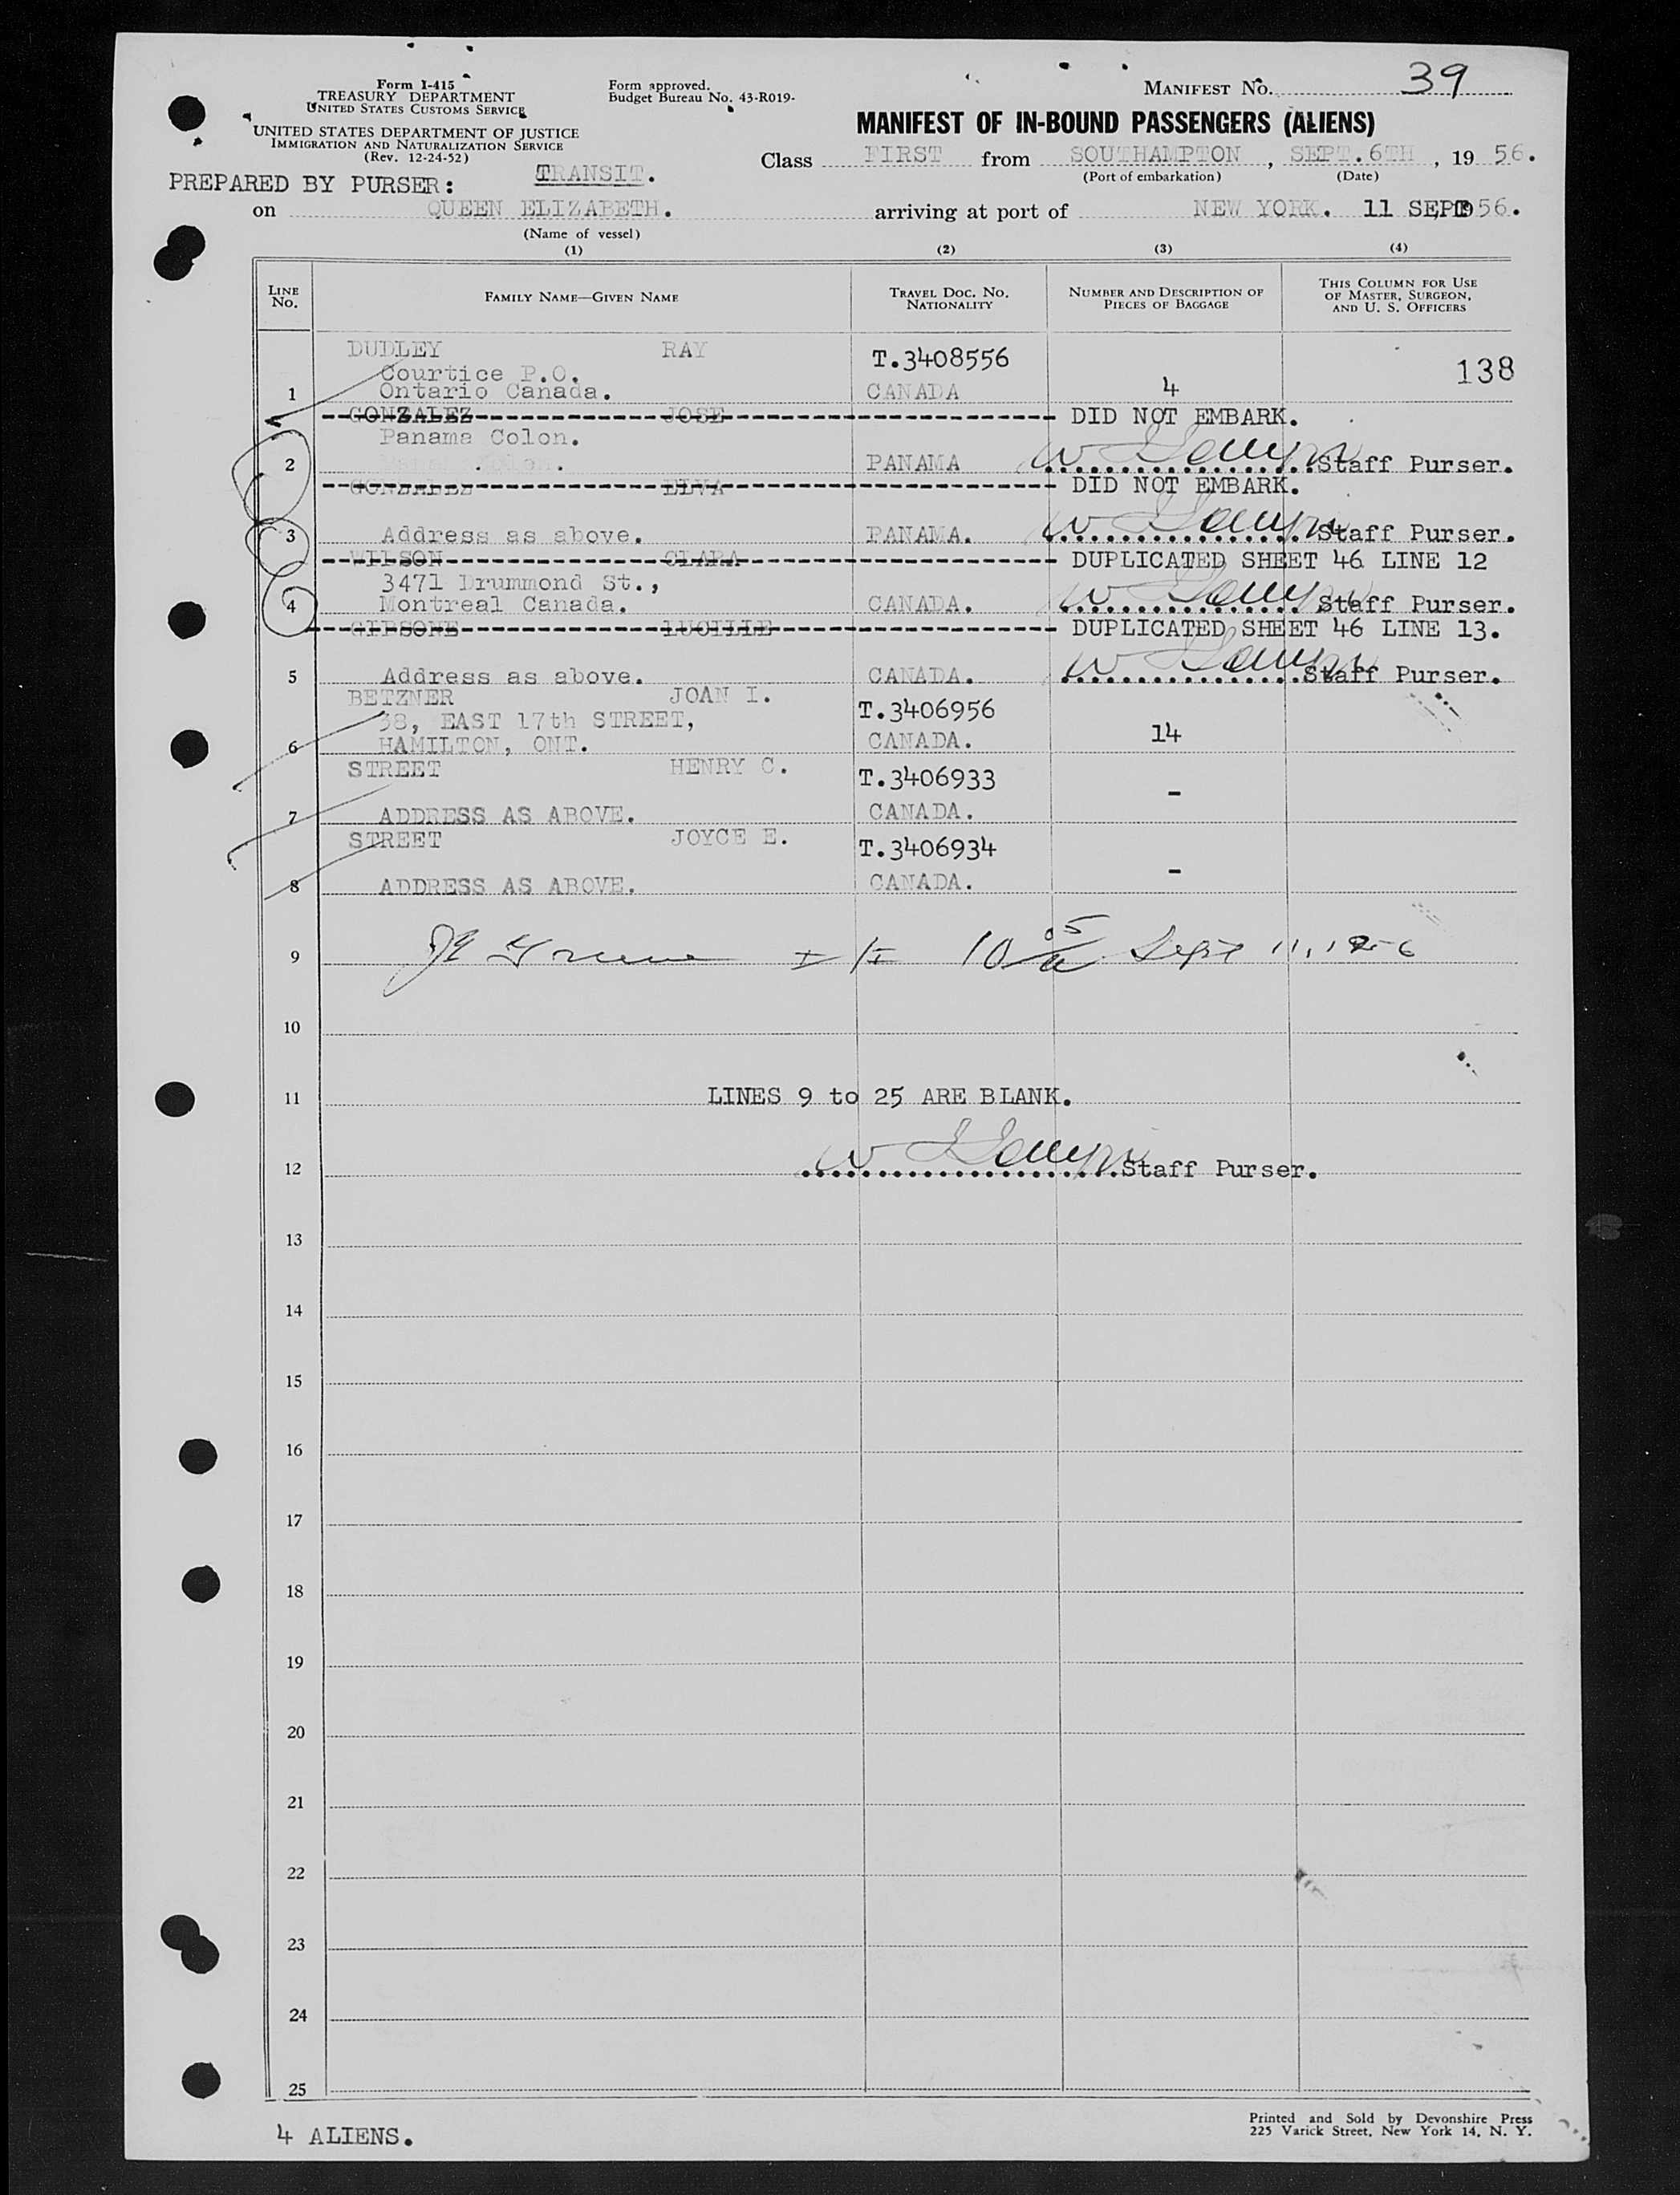 Form I-415
TREASURY DEPARTMENT
UNITED STATES CUSTOMS SERVICE
UNITED STATES DEPARTMENT OF JUSTICE
IMMIGRATION AND NATURALIZATION SERVICE
(Rev. 12-24-52)
Form approved.
Budget Bureau No. 43-R019-
MANIFEST NO. 39
MANIFEST OF IN-BOUND PASSENGERS (ALIENS)
Class FIRST from SOUTHAMPTON , SEPT.6TH , 19 56.
(Port of embarkation) (Date)
TRANSIT.
PREPARED BY PURSER:
on QUEEN ELIZABETH. arriving at port of NEW YORK. 11 SEPT 1956.
(Name of vessel)
(1) (2) (3) (4)
LINE NO. FAMILY NAME—GIVEN NAME TRAVEL DOC. NO. NATIONALITY NUMBER AND DESCRIPTION OF PIECES OF BAGGAGE THIS COLUMN FOR USE OF MASTER, SURGEON, AND U. S. OFFICERS
DUDLEY RAY T.3408556 138
Courtice P.O.
1 Ontario Canada. CANADA 4
GONZALEZ JOSE DID NOT EMBARK.
Panama Colon.
2 PANAMA Staff Purser.
GONZALEZ ELVA DID NOT EMBARK.
3 Address as above. PANAMA. Staff Purser.
WILSON CLARA DUPLICATED SHEET 46 LINE 12
3471 Drummond St.,
4 Montreal Canada. CANADA. Staff Purser.
GIPSONE LUCILLE DUPLICATED SHEET 46 LINE 13.
5 Address as above. CANADA. Staff Purser.
BETZNER JOAN I. T.3406956
38, EAST 17th STREET,
6 HAMILTON, ONT. CANADA. 14
STREET HENRY C. T.3406933 -
7 ADDRESS AS ABOVE. CANADA.
STREET JOYCE E. T.3406934 -
8 ADDRESS AS ABOVE. CANADA.
9 10 05 Sept 11, 1956
10
11 LINES 9 to 25 ARE BLANK.
12 Staff Purser.
13
14
15
16
17
18
19
20
21
22
23
24
25
4 ALIENS.
Printed and Sold by Devonshire Press
225 Varick Street, New York 14, N. Y.